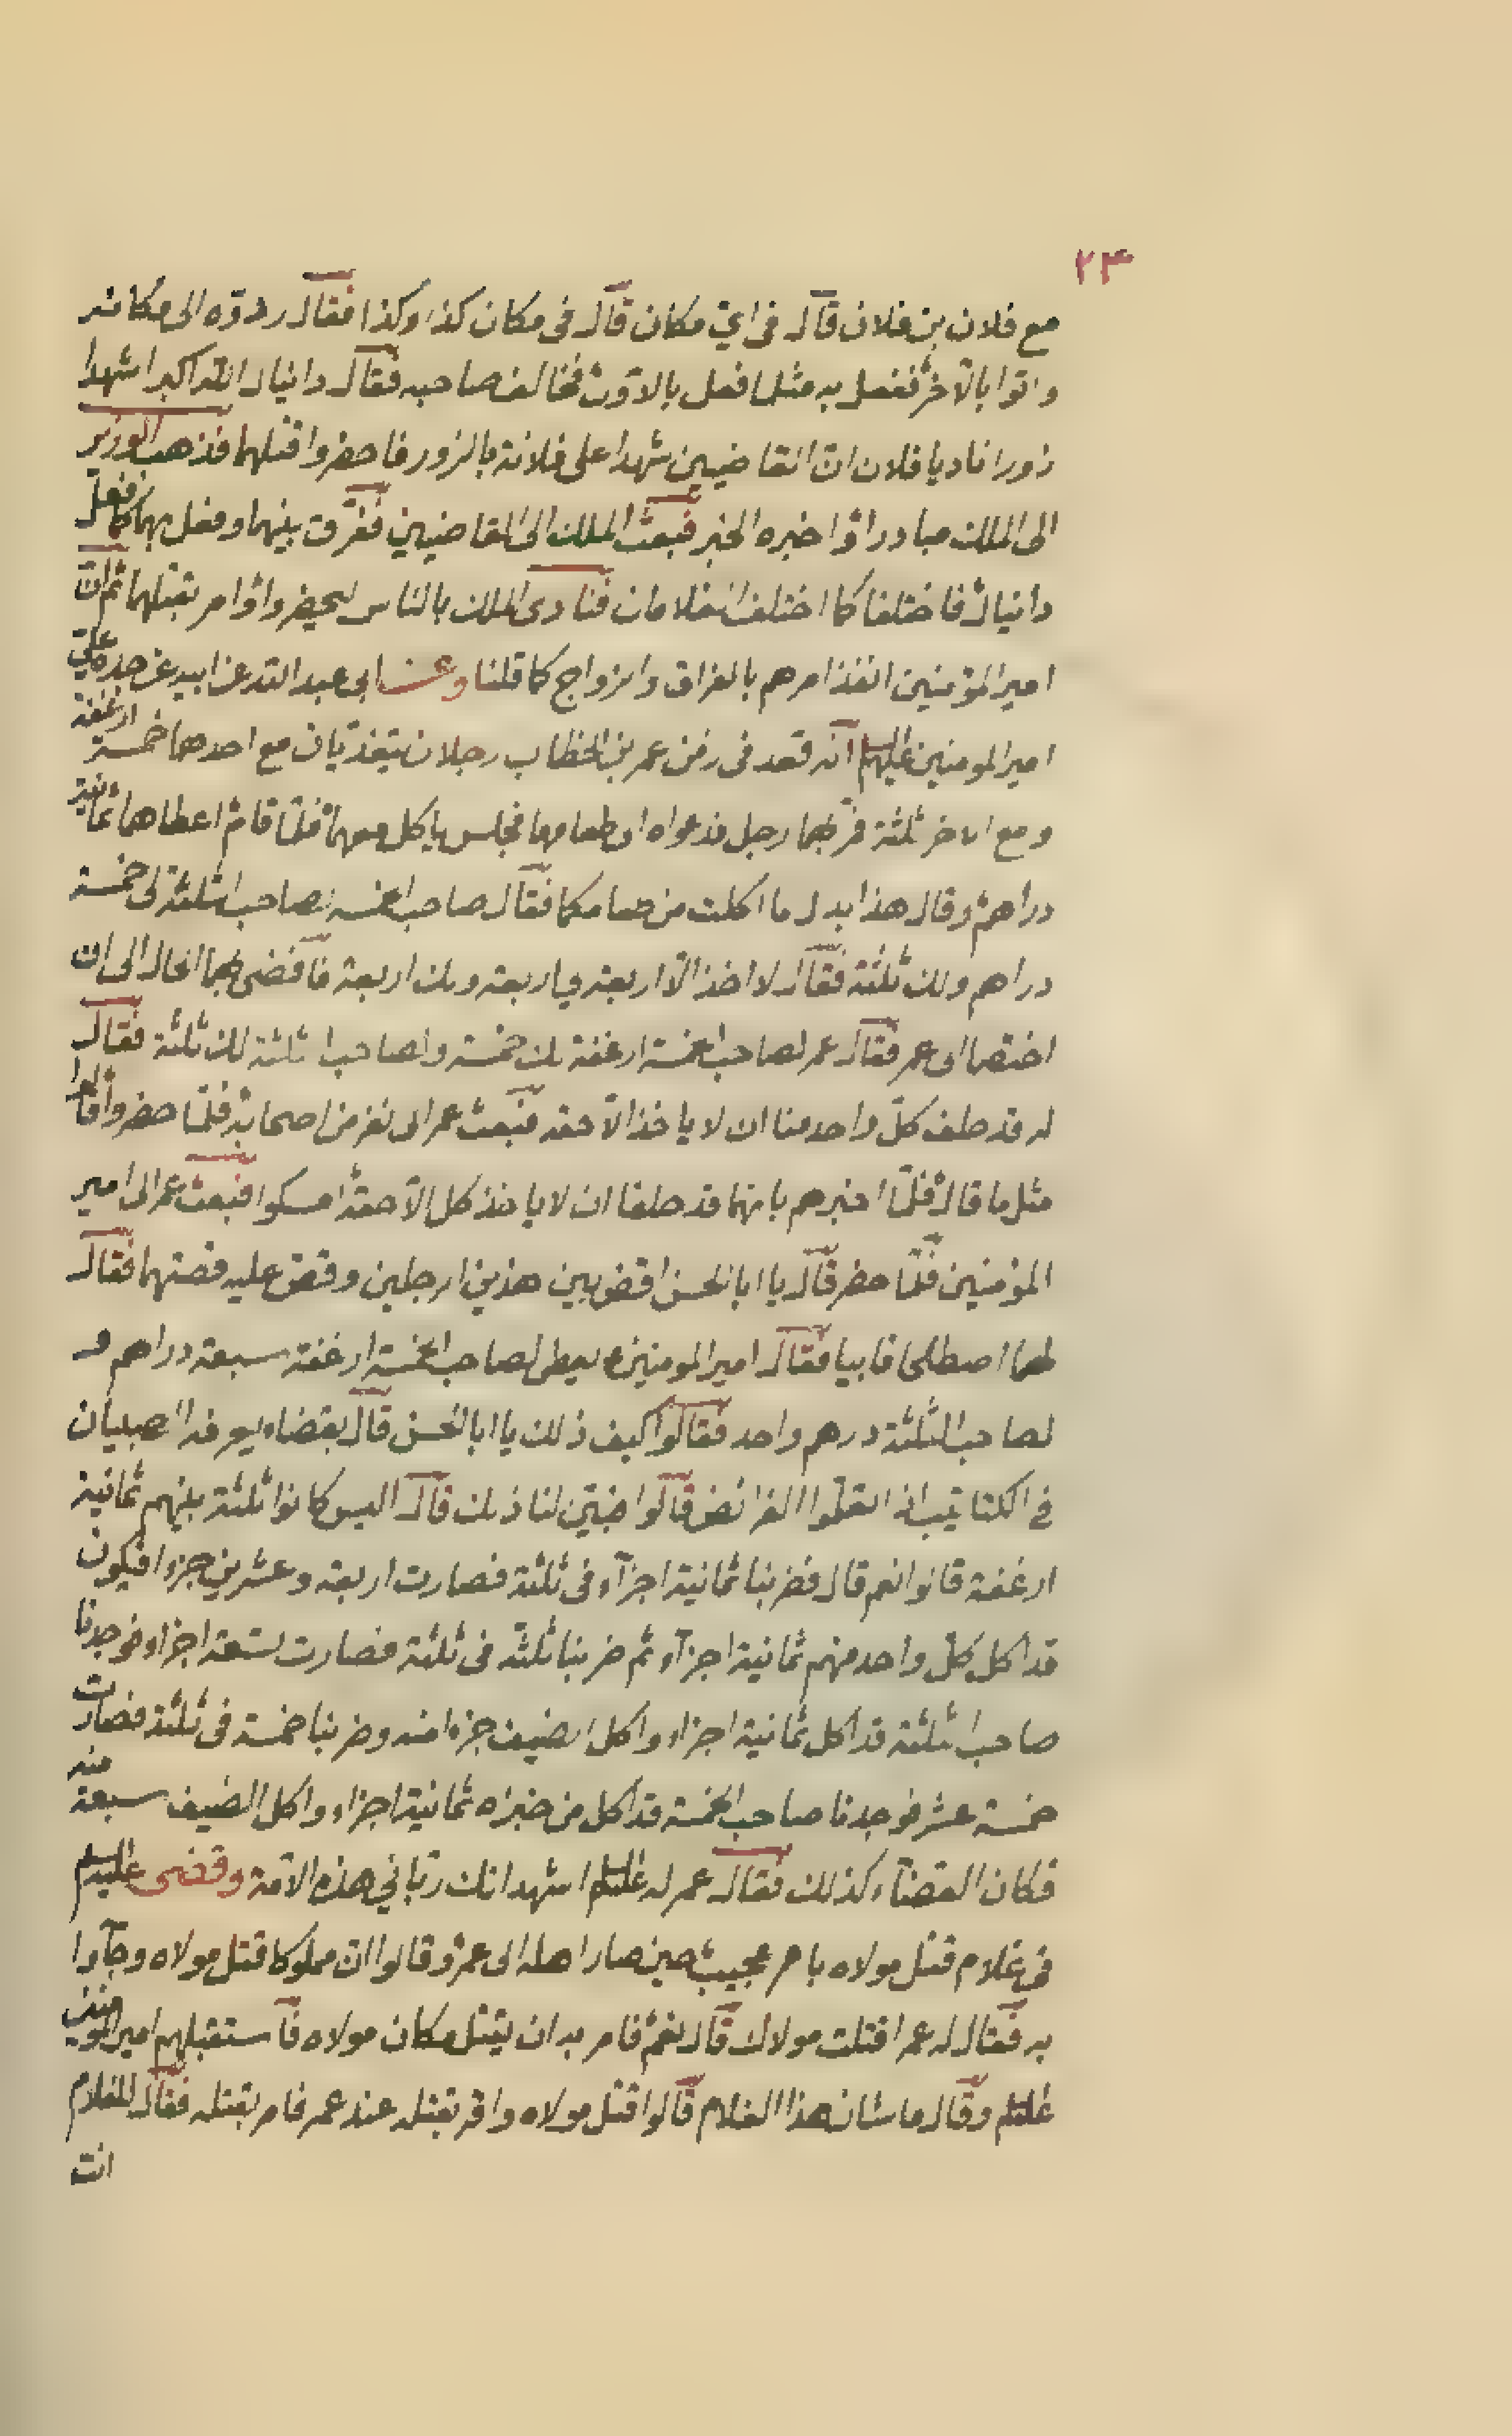 ٢٣
مع فلان بن فلان قال في اي مكان قال في مكان كذا وكذا فقال ردوّه الى مكانه
واتوا بالآخر ففعل به مثل ما فعل بالاول فخالف صاحبه فقال دانيال الله اكبر اشهدا
زورا ناد يا فلان ان القاضيين شهدا على فلانة بالزور فاحضروا قتلهما فذهب الوزير
الى الملك مبادرا واخبره الخبر فبعث الملك الى القاضيين ففرّق بينهما وفعل بهما كما فعل
دانيال فاختلفا كما اختلف الغلامان فنادى الملك بالناس ليحضروا وامر بقتلهما ثم ان
امير المؤمنين انفذ امرهم بالفراق والزواج كما قلنا وعن ابى عبد الله عن ابيه عن جده علي
امير المومنين عليهم السلم انه قعد في زمن عمر بن الخطاب رجلان يتغذيان مع احدهما خمسة ارغفة
ومع الاخر ثلثة فمرّ بهما رجل فدعواه الى طعامهما فجلس ياكل معهما فلمّا قام اعطاهما ثمانية
دراهم وقال هذا بدل ما اكلت من طعامكما فقال صاحب الخمسه لصاحب الثلثة لى خمسة
دراهم ولك ثلثة فقال لا اخذ الّا اربعة لي اربعة ولك اربعة فافضى بهما الحال الى ان
اختصما الى عمر فقال عمر لصاحب الخمسة ارغفة لك خمسة ولصاحب الثلثة لك ثلثة فقال
له قد حلف كلّ واحد منا ان لا ياخذ الّا حقه فبعث عمر الى نفر من اصحابه فلمّا حضروا قالوا
مثل ما قال فلمّا اخبرهم بانهما قد حلفا ان لا ياخذ كل الّا حقه امسكوا فبعث عمر الى امير
المؤمنين فلمّا حضر قال يا ابا الحسن اقض بين هذين الرجلين وقصّ عليه قصتهما فقال
لهما اصطلحا فابيا فقال امير المومنينع يعطى لصاحب الخمسة ارغفة سبعة دراهم و
لصاحب الثلثة درهم واحد فقالوا كيف ذلك يا ابا الحسن قال بقضاء يعرفه الصبيان
في الكتاتيب اذا تعلّموا الفرائض قالوا بيّن لنا ذلك قال اليس كانوا ثلثة بينهم ثمانية
ارغفة قالوا نعم قال فضربنا ثمانية اجزآء في ثلثة فصارت اربعة وعشرين جزءا فيكون
قد اكل كلّ واحد منهم ثمانية اجزآء ثم ضربنا ثلثة في ثلثة فصارت تسعة اجزاء فوجدنا
صاحب الثلثة قد اكل ثمانية اجزاء واكل الضيف جزءا منه وضربنا خمسة في ثلثة فصارت
خمسة عشر فوجدنا صاحب الخمسة قد اكل من خبزه ثمانية اجزاء واكل الضيف سبعة منه
فكان القضآء كذلك فقال عمر له عليه السلم اشهد انك ربّاني هذه الامة وقضى عليه السلم
في غلام قتل مولاه بامر عجيب حين صار اهله الى عمر وقالوا ان مملوكا قتل مولاه وجآوا
به فقال له عمر اقتلت مولاك قال نعم فامر به ان يقتل مكان مولاه فاستقبلهم امير المومنين
عليه السلم وقال ما شان هذا الغلام قالوا قتل مولاه واقر بقتله عند عمر فامر بقتله فقال للغلام
انت